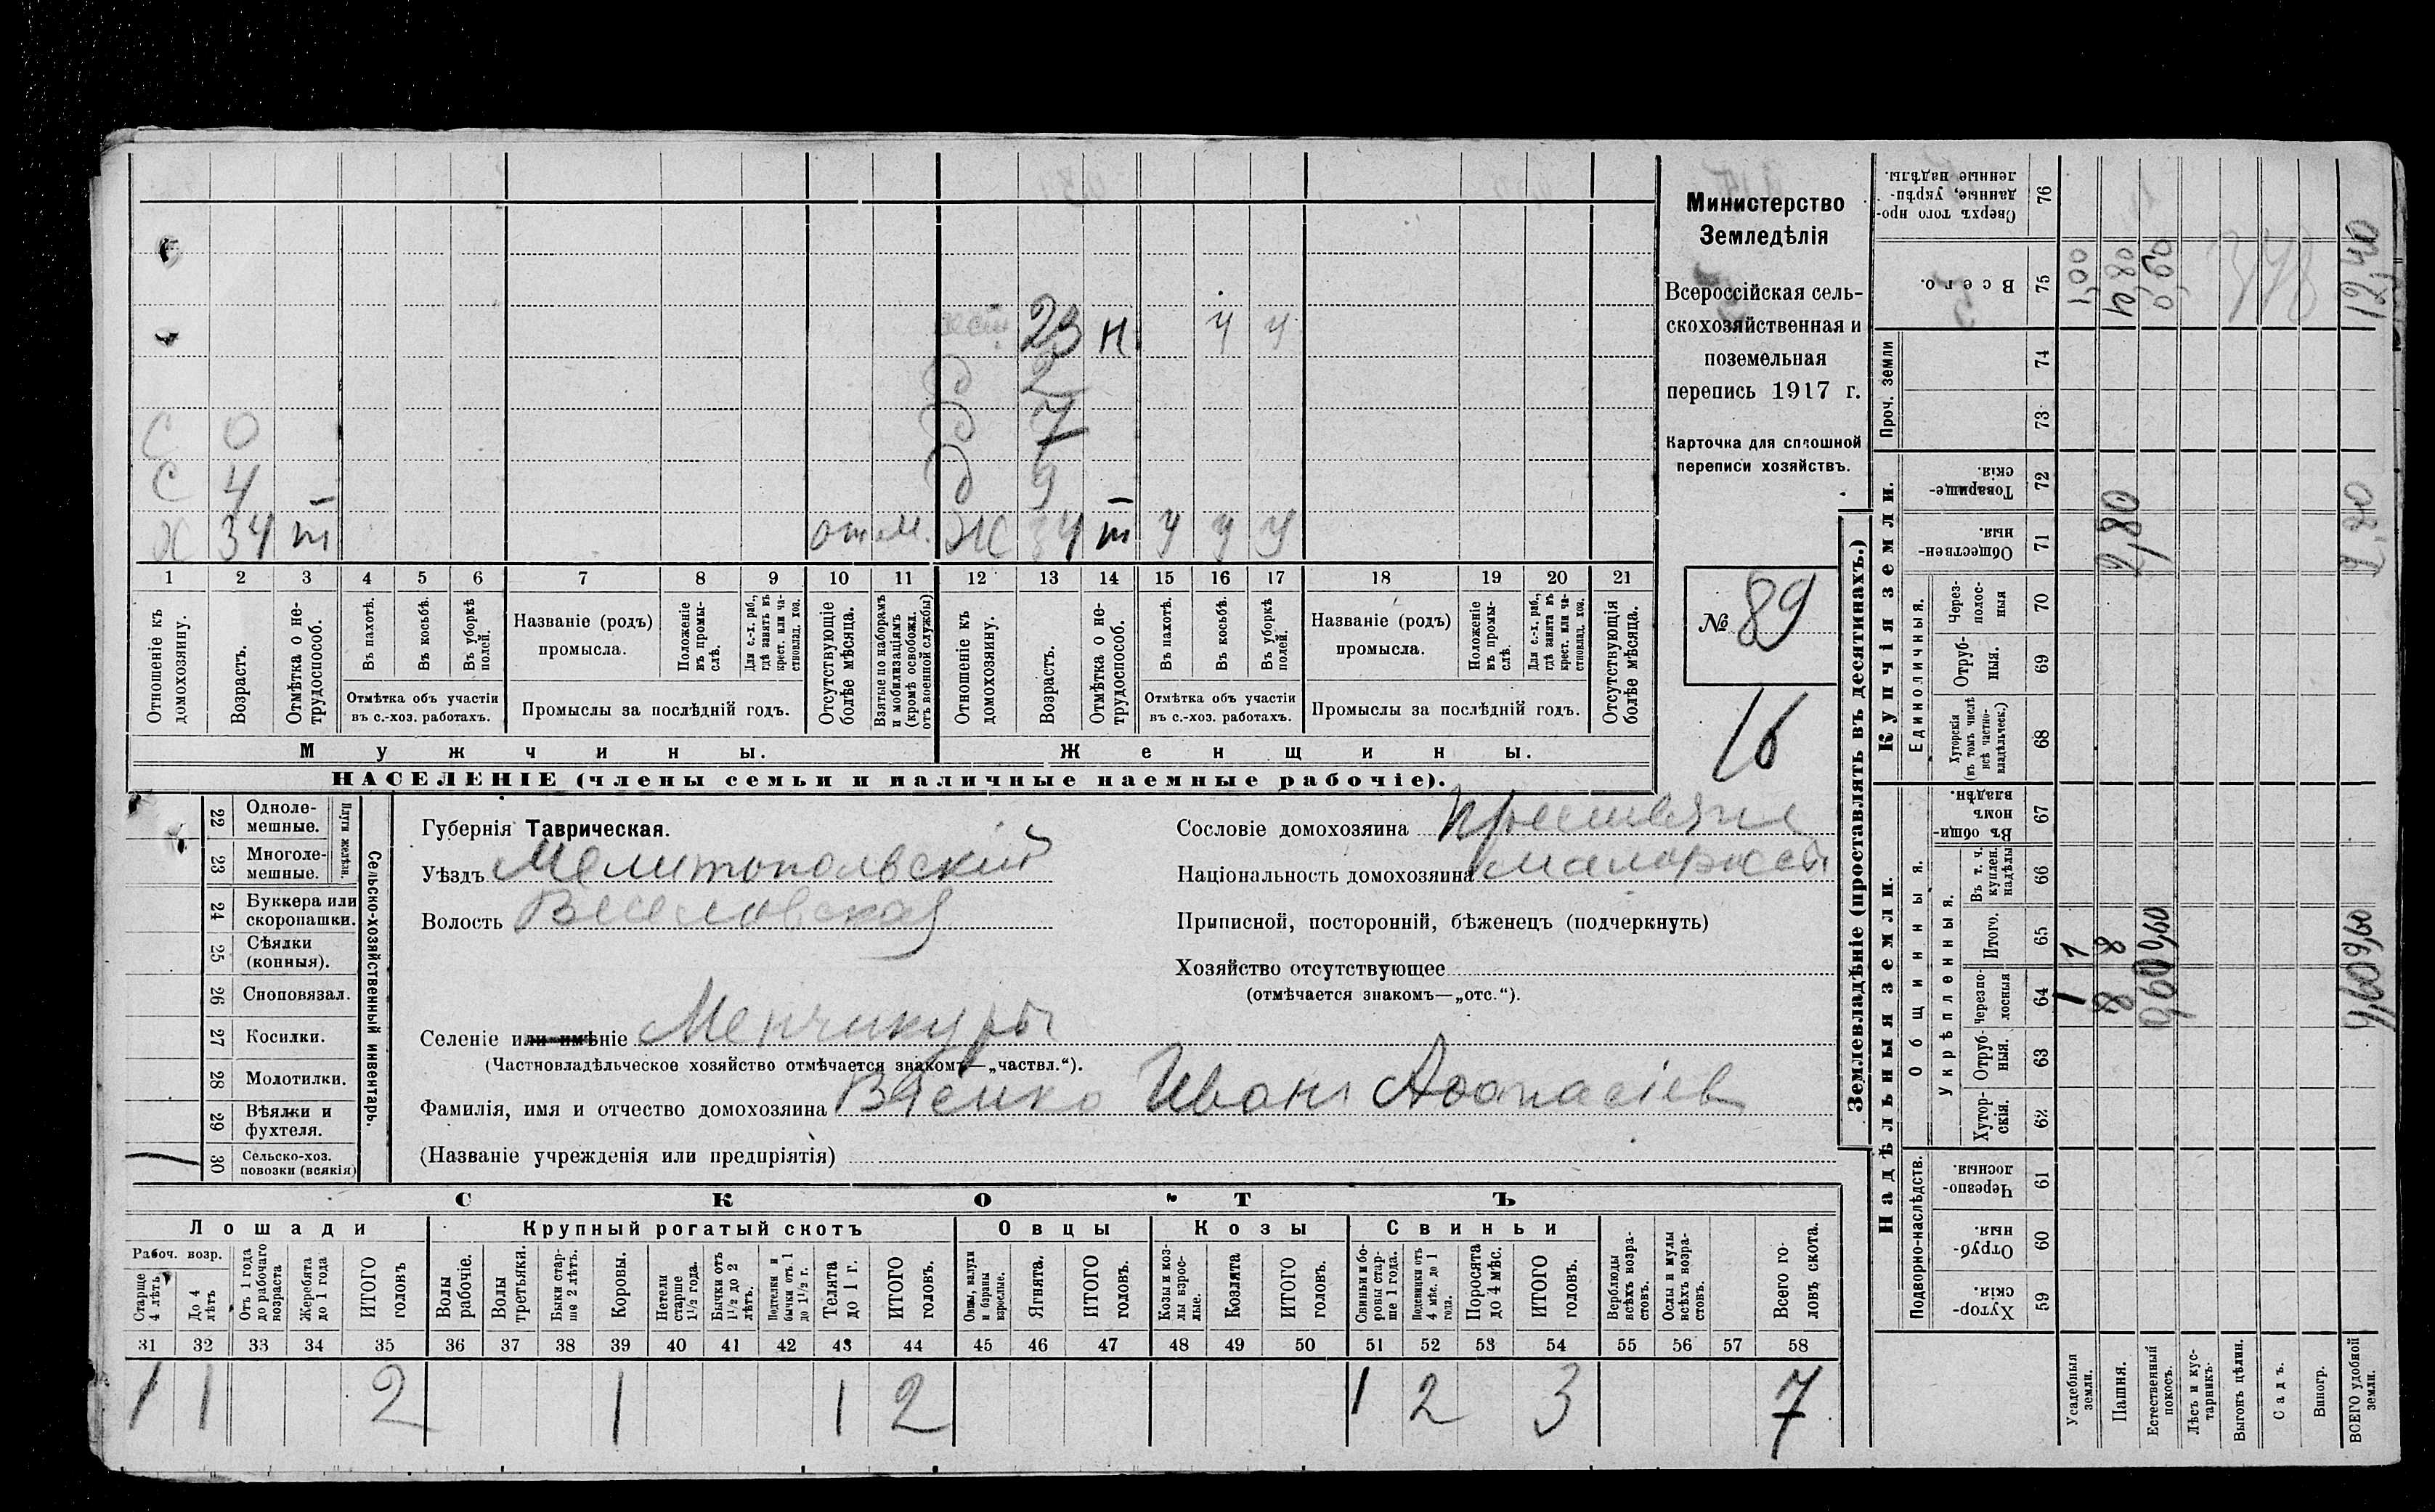 Министерство
Земледѣлія
Всероссійская сель-
скохозяйственная и
поземельная
перепись 1917 г.
Карточка для сплошной
переписи хозяйствъ.
№ 89
16
23 н. у у
д 2
С 0 д 7
С 4 д 9
Х 34 т отм. Ж 34 т у у у
1 2 3 4 5 6 7 8 9 10 11 12 13 14 15 16 17 18 19 20 21
Отношеніе къ домохозяину.
Возрастъ.
Отмѣтка о не-трудоспособ.
Въ пахотѣ.
Въ косьбѣ.
Въ уборкѣ полей.
Отмѣтка объ участіи
въ с.-хоз. работахъ.
Названіе (родъ)
промысла.
Положеніе въ промы-слѣ.
Для с.-х. раб., гдѣ занятъ въ крест. или ча-стновлад. хоз.
Промыслы за послѣдній годъ.
Отсутствующіе болѣе мѣсяца.
Взятые по наборамъ и мобилизаціямъ (кромѣ освобожд. отъ военной службы)
Отношеніе къ домохозяину.
Возрастъ.
Отмѣтка о не-трудоспособ.
Въ пахотѣ.
Въ косьбѣ.
Въ уборкѣ полей.
Отмѣтка объ участіи
въ с.-хоз. работахъ.
Названіе (родъ)
промысла.
Положеніе въ промы-слѣ.
Для с.-х. раб., гдѣ занята въ крест. или ча-стновлад. хоз.
Промыслы за послѣдній годъ.
Отсутствующія болѣе мѣсяца.
Мужчины. Женщины.
НАСЕЛЕНІЕ (члены семьи и наличные наемные рабочіе).
Сельско-хозяйственный инвентарь.
Плуги желѣзн.
22 Одноле-мешные.
23 Многоле-мешные.
24 Буккера или скоропашки.
25 Сѣялки (конныя).
26 Сноповязал.
27 Косилки.
28 Молотилки.
29 Вѣялки и фухтеля.
30 Сельско-хоз. повозки (всякія) 1
Губернія Таврическая.
Уѣздъ Мелитопольский
Волость Веселовская
Селеніе или имѣніе Менчикуры
(Частновладѣльческое хозяйство отмѣчается знакомъ—„частвл.“).
Фамилія, имя и отчество домохозяина Иванъ Афанасіев
(Названіе учрежденія или предпріятія)
Сословіе домохозяина
Національность домохозяина малоросс
Приписной, посторонній, бѣженецъ (подчеркнуть)
Хозяйство отсутствующее
(отмѣчается знакомъ—„отс.“).
СКОТЪ
Лошади Крупный рогатый скотъ Овцы Козы Свиньи
Рабоч. возр.
Старше 4 лѣтъ
До 4 лѣтъ
Отъ 1 года до рабочаго возраста
Жеребята до 1 года
ИТОГО головъ
Волы рабочіе.
Волы третьяки.
Быки стар-ше 2 лѣтъ.
Коровы.
Нетели старше 1½ года.
Бычки отъ 1½ до 2 лѣтъ.
Подтелки и бычки отъ 1 до 1½ г.
Телята до 1 г.
ИТОГО головъ.
Овцы, валухи и бараны взрослые.
Ягнята.
ИТОГО головъ.
Козы и коз-лы взрос-лые.
Козлята
ИТОГО головъ.
Свиньи и бо-ровы стар-ше 1 года.
Подсвинки отъ 4 мѣс. до 1 года.
Поросята до 4 мѣс.
ИТОГО головъ.
Верблюды всѣхъ возра-стовъ.
Ослы и мулы всѣхъ возра-стовъ.
Всего го-ловъ скота.
31 32 33 34 35 36 37 38 39 40 41 42 43 44 45 46 47 48 49 50 51 52 53 54 55 56 57 58
1 1 2 1 1 2 1 2 3 7
Землевладѣніе (проставлять въ десятинахъ.)
Надѣльныя земли. Купчія земли. Проч. земли
Подворно-наслѣдств.
Общинныя.
Укрѣпленныя.
Единоличныя.
Хутор-скія. 59
Отруб-ныя. 60
Черезпо-лосныя. 61
Хутор-скія. 62
Отруб-ныя. 63
Черезпо-лосныя 64
Итого. 65
Въ т. ч. куплен. надѣлы 66
Въ общин-номъ владѣн. 67
Хуторскія (въ томъ числѣ всѣ частно-владѣльческ.) 68
Отруб-ныя. 69
Через-полос-ныя 70
Обществен-ныя. 71
Товарище-скія. 72
73
74
Всего. 75
Сверхъ того про-данные, укрѣп-ленные надѣлы. 76
Усадебныя земли. 1 1 1,00
Пашня. 8 8 2,80 10,80
Естественный покосъ. 0,60 0,60 0,60
Лѣсъ и кус-тарникъ.
Выгонъ цѣлин.
Садъ.
Виногр.
ВСЕГО удобной земли. 9,60 9,60 2,80 12,40
378